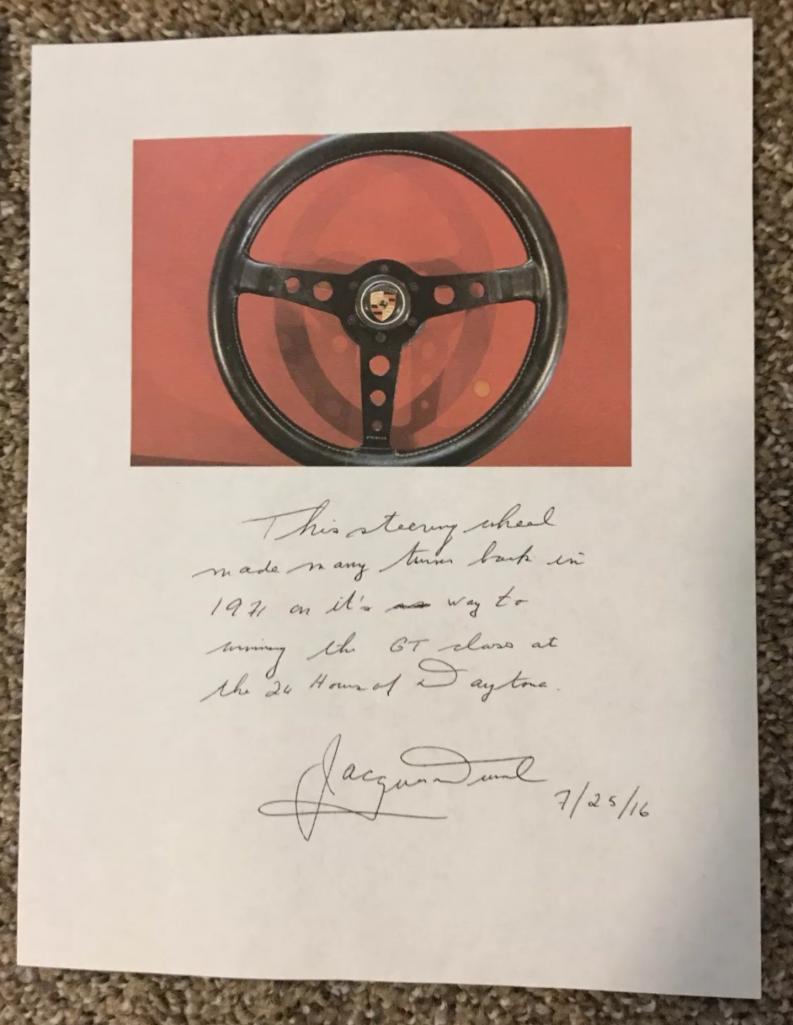 This steering wheel
made many turns back in
1971 on it's way to
winning the GT class at
the 24 Hours of Daytona.
Jacques Duval
7/25/16